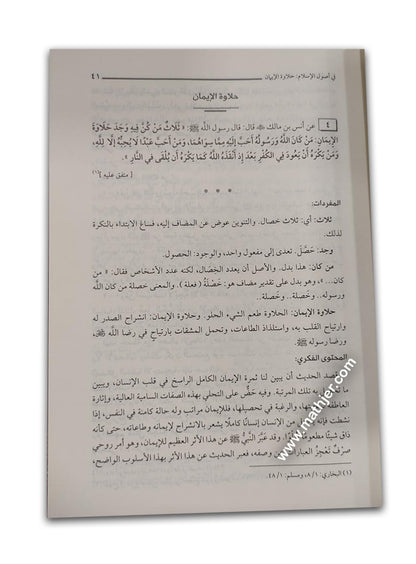 في أصول الإسلام: حلاوة الإيمان ٤١
حلاوة الإيمان
٤ عن أنس بن مالك ﷺ قال: قال رسول الله ﷺ: « ثَلَاثٌ مَنْ كُنَّ فِيهِ وَجَدَ حَلَاوَةَ
الإِيمَانِ: مَنْ كَانَ اللَّهُ وَرَسُولُهُ أَحَبَّ إِلَيْهِ مِمَّا سِوَاهُمَا، وَمَنْ أَحَبَّ عَبْدًا لَا يُحِبُّهُ إِلَّا لِلَّهِ،
وَمَنْ يَكْرَهُ أَنْ يَعُودَ فِي الْكُفْرِ بَعْدَ إِذْ أَنْقَذَهُ اللَّهُ كَمَا يَكْرَهُ أَنْ يُلْقَى فِي النَّارِ ».
[ متفق عليه ](١)
* * *
المفردات:
ثلاث: أي: ثلاث خصال. والتنوين عوض عن المضاف إليه، فساغ الابتداء بالنكرة
لذلك.
وجد: حَصَّلَ. تعدى إلى مفعول واحد، والوجود: الحصول.
من كان: هذا بدل. والأصل أن يعدد الخصال، لكنه عدد الأشخاص فقال: « من
كان... »، وهو بدل على تقدير مضاف هو: خَصْلَةُ ( فعلة ). والمعنى خصلة من كان اللَّه
ورسوله.. وخصلة.. وخصلة.
حلاوة الإيمان: الحلاوة طعم الشيء الحلو. وحلاوة الإيمان: انشراح الصدر له
وارتياح القلب به، واستلذاذ الطاعات، وتحمل المشقات بارتياح في رضا اللَّه،
ورضا رسوله ﷺ.
المحتوى الفكري:
قصد الحديث أن يبين لنا ثمرة الإيمان الكامل الراسخ في قلب الإنسان، وبين
به تلك المرتبة. وفيه حضٌّ على التحلي بهذه الصفات السامية العالية، وإثارة
العاطفة والرغبة في تحصيلها، فللإيمان مراتب وله حالة كامنة في النفس، إذا
نشطت فإنه من الإنسان إنسانًا كاملًا يشعر بالانشراح لإيمانه وطاعاته، حتى كأنه
ذاق شيئًا مطعومًا. وقد عبَّر النبيُّ ﷺ عن هذا الأثر العظيم للإيمان، وهو أمر روحي
صرْفٌ تَعْجَزُ العبارات عن وصفه، فعبر الحديث عن هذا الأثر بهذا الأسلوب الواضح،
(١) البخاري: ٨/١، ومسلم: ٤٨/١.
www.mathjer.com